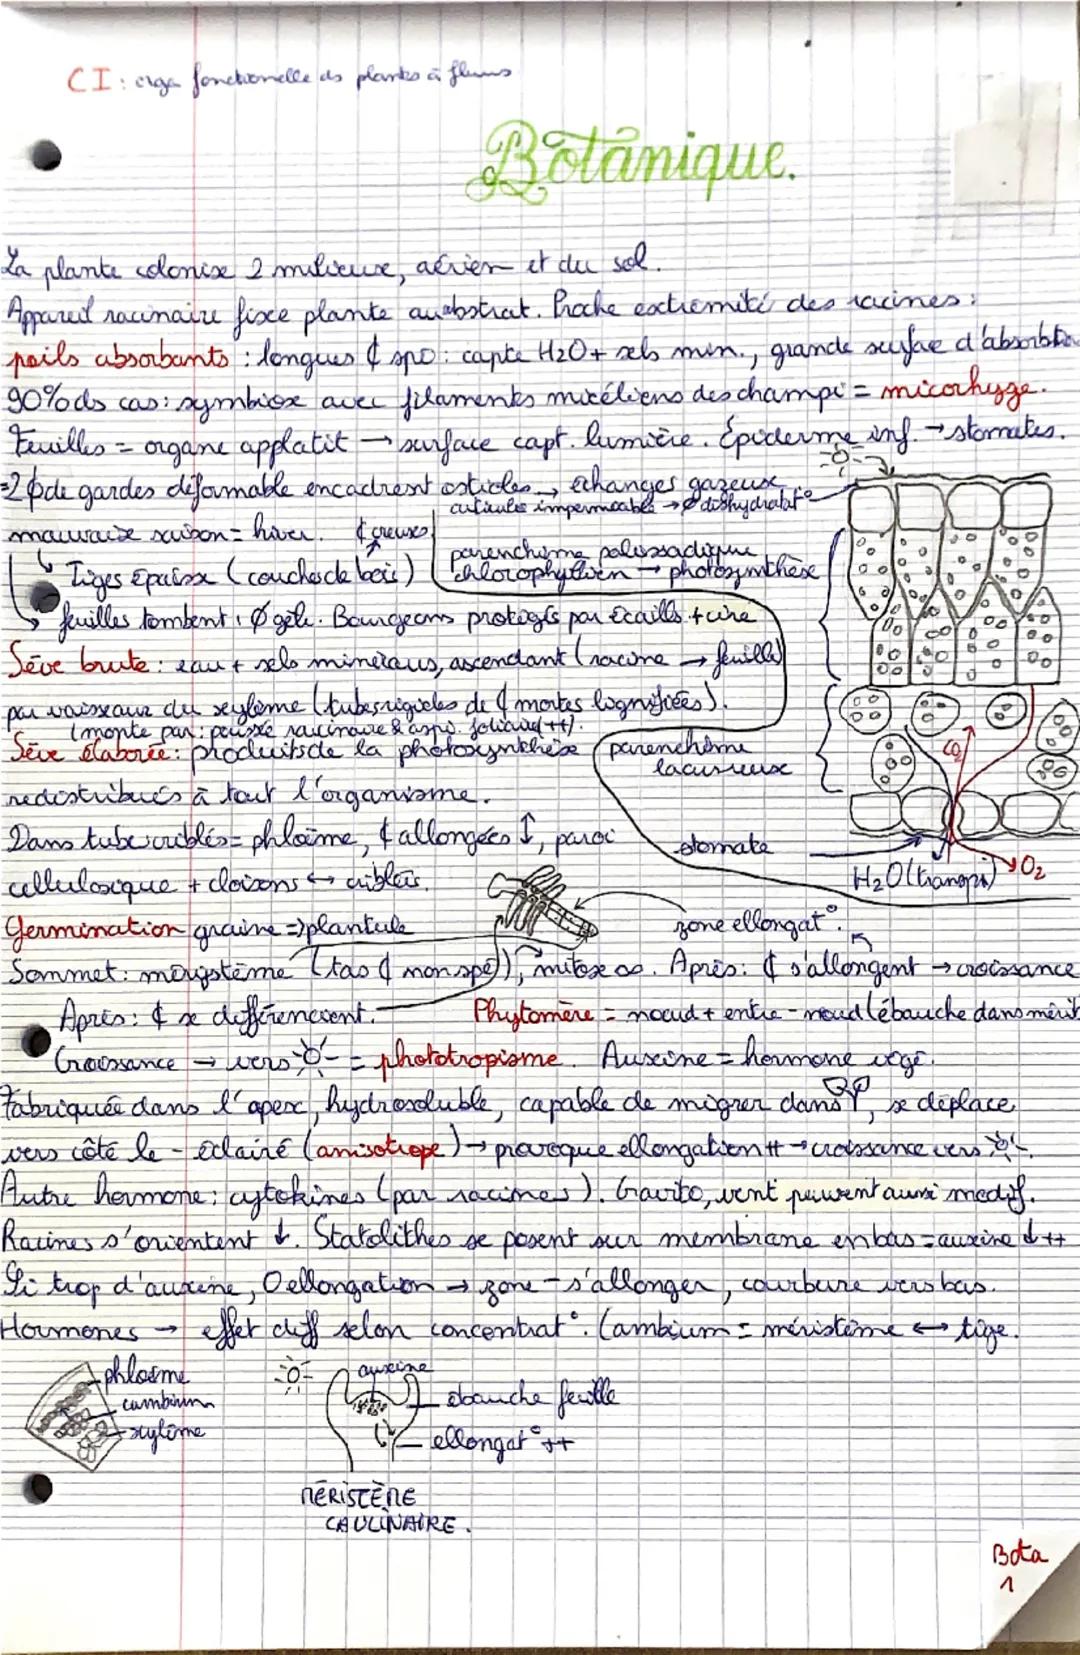 CI: orga fonctionnelle ds plantes à fleurs
Botanique.
La plante colonise 2 milieux, aérien et du sol.
Appareil racinaire fixe plante au substrat. Proche extrémité des racines:
poils absorbants : longues ¢ spé : capte H2O + sels min., grande surface d'absorbtion
90% ds cas: symbiose avec filaments micéliens des champi = micorhyze.
Feuilles = organe applatit → surface capt. lumière. Épiderme inf. → stomates.
= 2 ¢ de gardes déformable encadrent osticles → échanges gazeux
cuticules impermeable → Ø déshydratat°
mauvaise saison = hiver. ¢ creuses
parenchime palissadique
Tiges épaisse (couches de bois)
chlorophyllien → photosynthèse
feuilles tombent, Ø gèle. Bourgeons protégés par écailles + cire
Sève brute: eau + sels minéraux, ascendant (racine → feuille)
par vaisseaux du xylème (tubes rigides de ¢ mortes lignifiées).
(monte par: poussé racinaire & aspi. foliaire(++).
Sève élaborée: produits de la photosynthèse
parenchime
lacuneuse
redistribués à tout l'organisme.
Dans tube criblés = phloème, ¢ allongées ↕, paroi
stomate
CO2
H2O (transpi) O2
cellulosique + cloisons ↔ criblés.
Germination graine => plantule
zone ellongat°.
Sommet: méristème (tas ¢ non spé), mitose ∞. Après: ¢ s'allongent → croissance
Après: ¢ se différencient.
Phytomère = nœud + entre-nœud (ébauche dans mérist
Croissance → vers ☼ = phototropisme. Auxine = hormone végé.
Fabriquée dans l'apex, hydrosoluble, capable de migrer dans, se déplace
vers côté le - éclairé (anisotrope) → provoque ellongation ++ → croissance vers ☼.
Autre hormone: cytokines (par racines). Gravité, vent peuvent aussi modif.
Racines s'orientent ↓. Statolithes se posent sur membrane en bas = auxine ↓ ++
Si trop d'auxine, 0 ellongation → zone - s'allonger, courbure vers bas.
Hormones → effet diff selon concentrat°. Cambium = méristème ↔ tige.
phloème
cambium
xylème
auxine
ébauche feuille
ellongat° ++
MÉRISTÈME
CAULINAIRE.
Bota
1